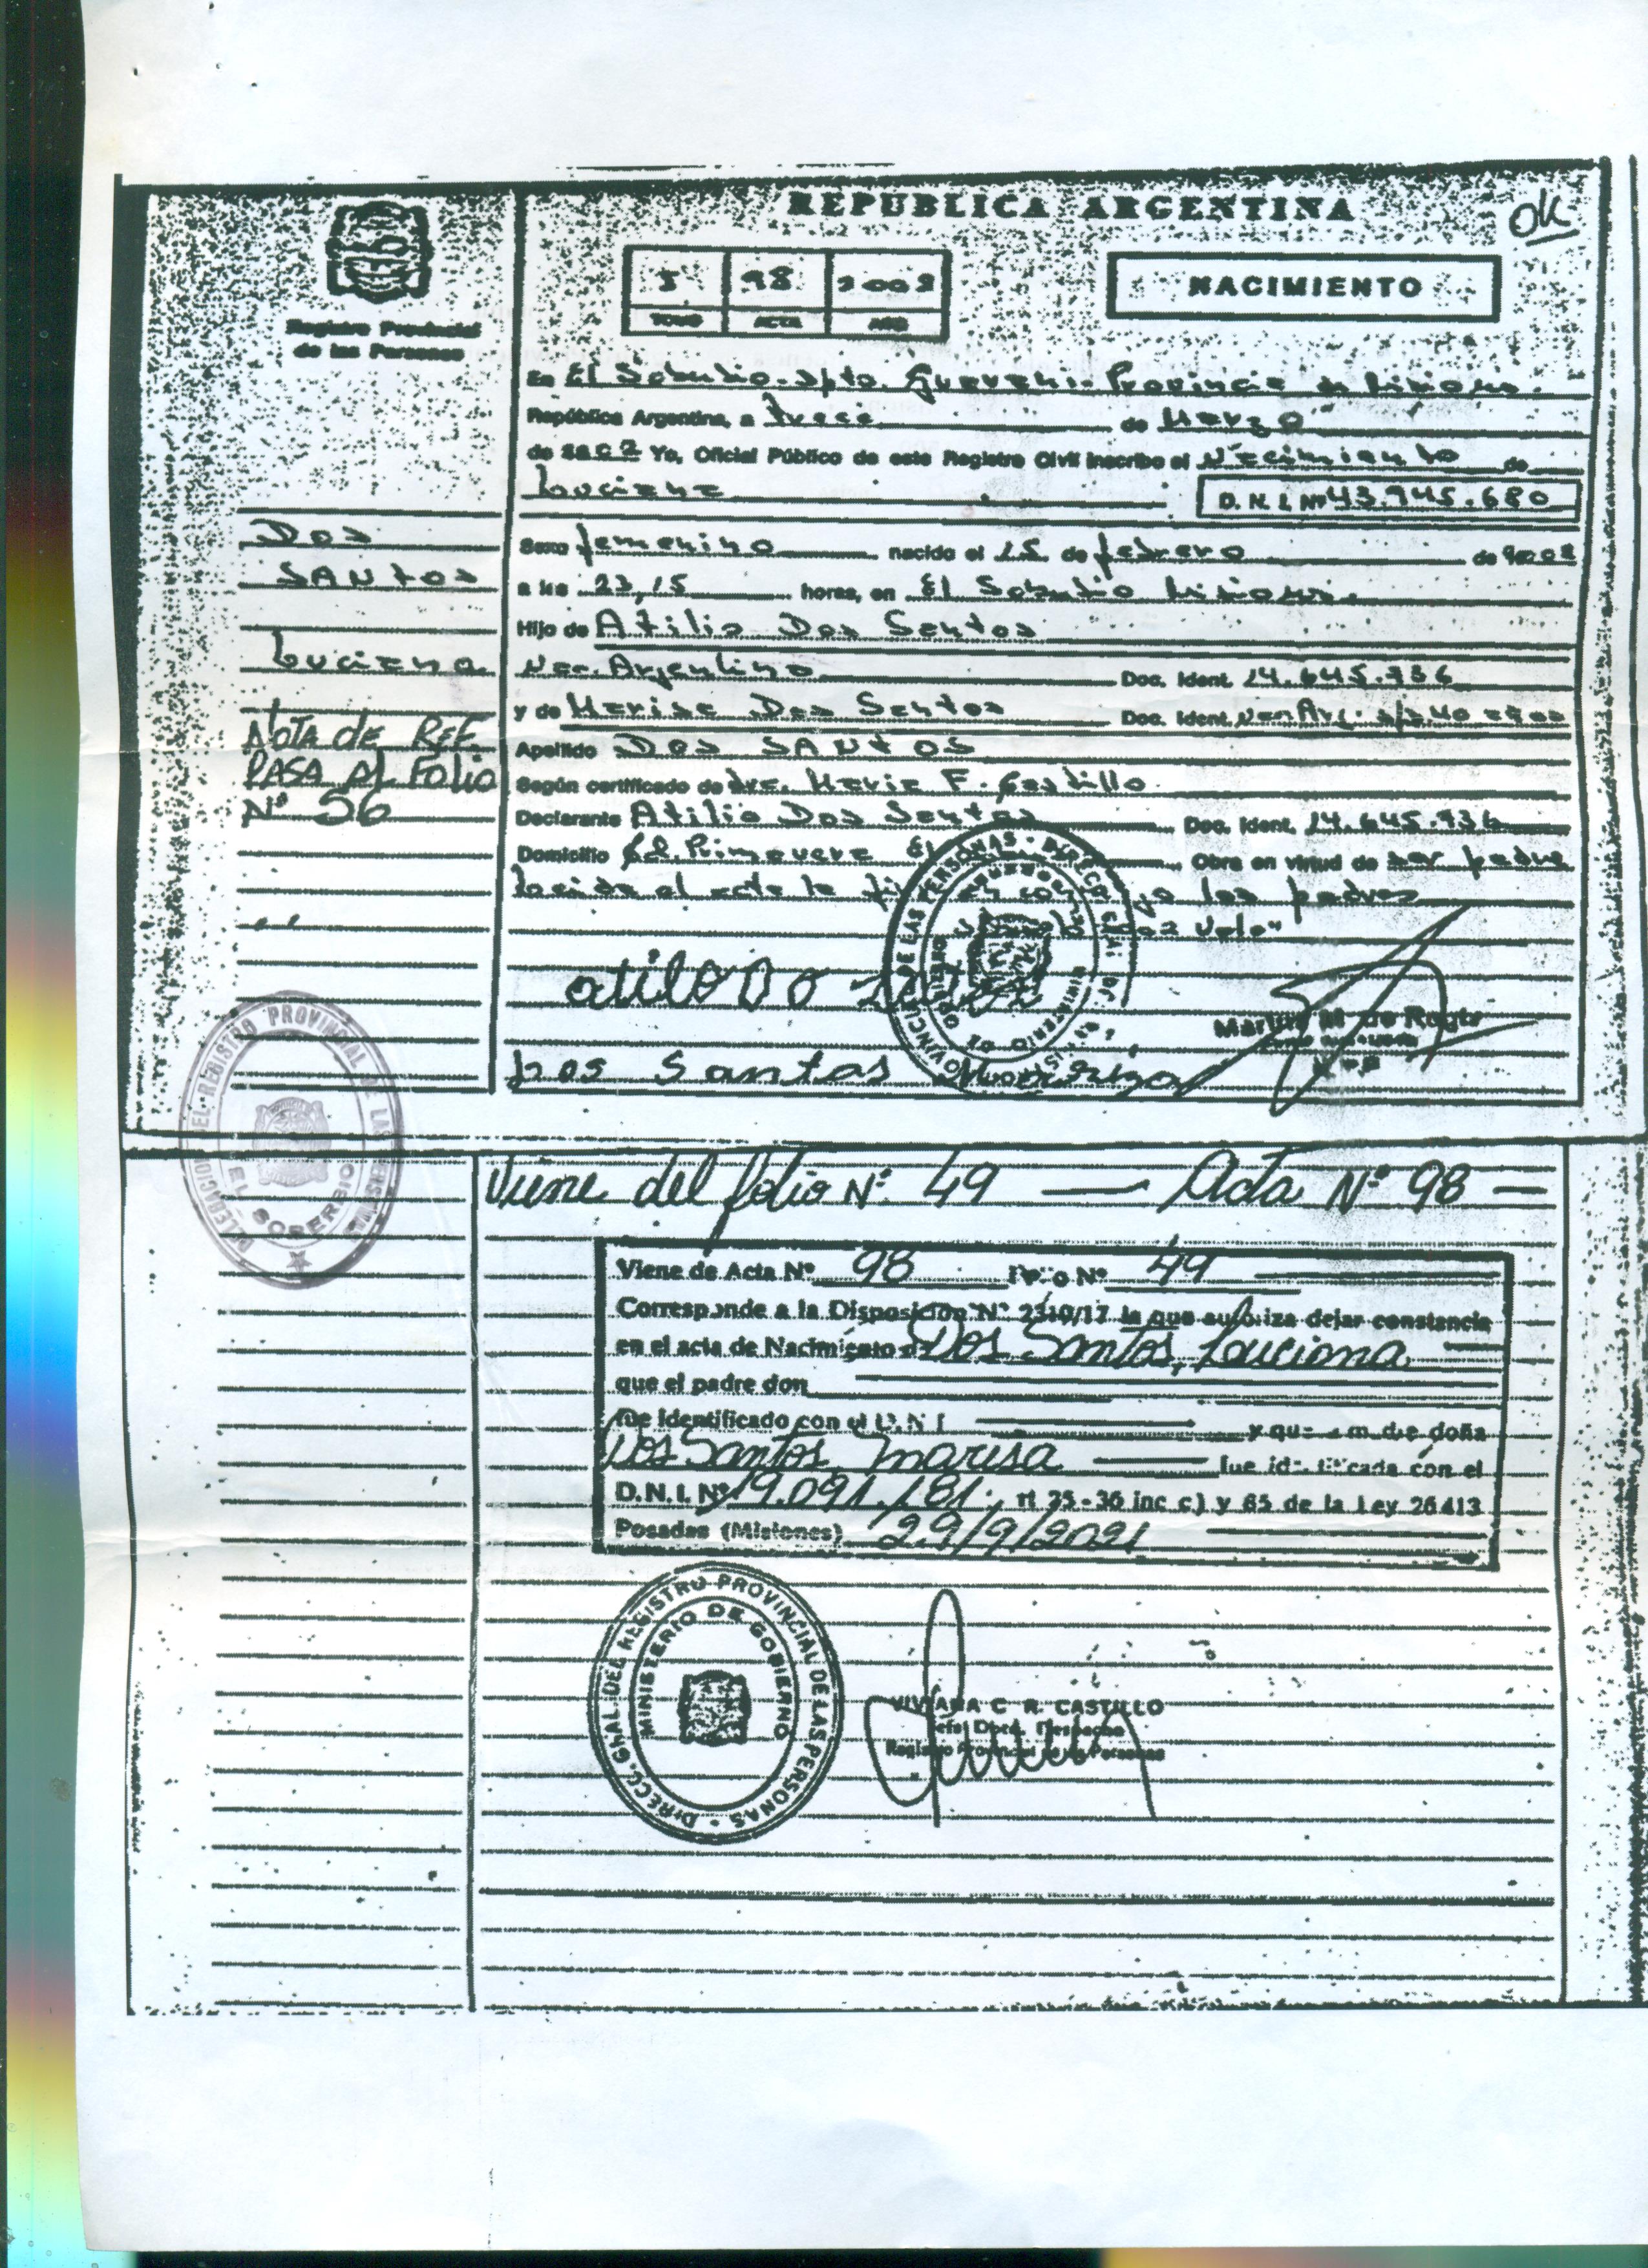 REPUBLICA ARGENTINA
OK
Registro Provincial
de las Personas
98 2002
TOMO ACTA AÑO
NACIMIENTO
En El Soberbio. Dpto. Guarani. Provincia de Misiones.
República Argentina, a trece de Marzo
de 2002 Yo, Oficial Público de este Registro Civil inscribo el Nacimiento de
Luciana D. N. I. Nº 43.945.680
DOS
SANTOS
Luciana
NOTA de REF.
PASA Al Folio
Nº 56
Sexo femenino nacido el 15 de febrero de 2002
a las 23,15 horas, en El Soberbio Misiones.
Hijo de Atilio Dos Santos
Nac. Argentino Doc. Ident. 14.645.736
y de Marisa Dos Santos Doc. Ident.
Apellido DOS SANTOS
Según certificado de Dra. Maria F. Castillo
Declarante Atilio Dos Santos Doc. Ident. 14.645.736
Domicilio Primavera El Obra en virtud de ser padre
Leida el acta la los padres
Vale"
atilo DO
Dos Santos
DELEGACION DEL REGISTRO PROVINCIAL DE LAS PERSONAS
EL SOBERBIO
Viene del folio Nº 49 — Acta Nº 98 =
Viene de Acta Nº 98 Nº 49
Corresponde a la Disposición Nº 2310/17 la que autoriza dejar constancia
en el acta de Nacimiento Dos Santos, Luciana
que el padre don
fue identificado con el D.N.I y que madre doña
Dos Santos Marisa fue identificada con el
D.N.I. Nº 19.091.181. rt 25-36 inc c) y 85 de la Ley 26413
Posadas (Misiones) 29/9/2021
DIRECC. GRAL. DEL REGISTRO PROVINCIAL DE LAS PERSONAS
MINISTERIO DE GOBIERNO
VIVIANA C R. CASTILLO
Jefa Dpto. Despacho
Registro Provincial de las Personas